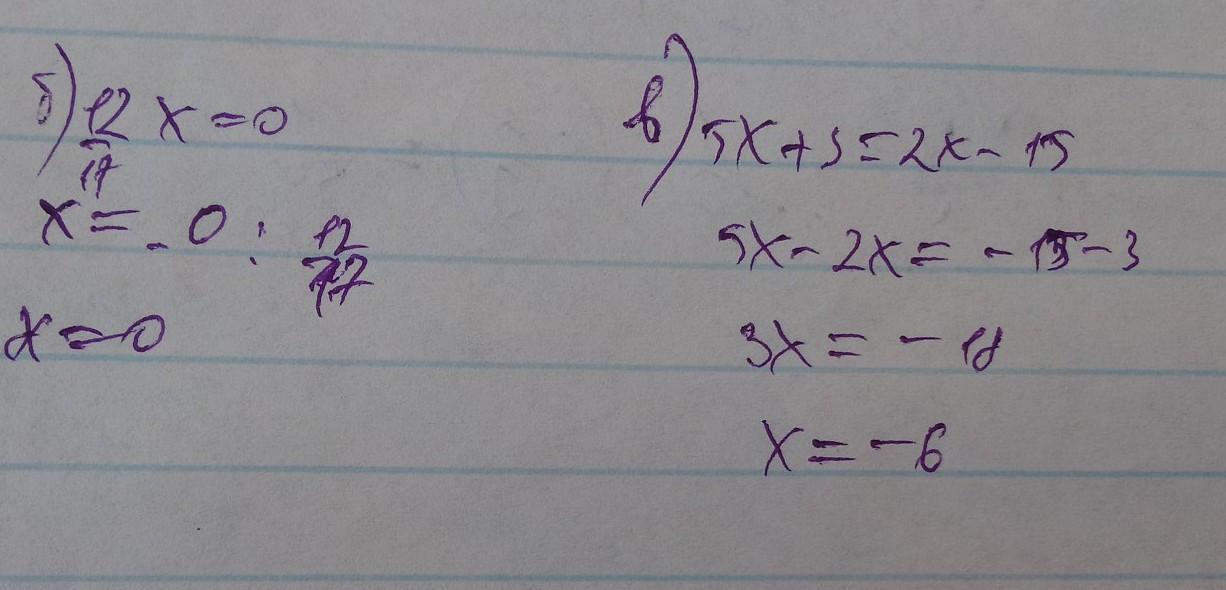 б) 12/17 x = 0
x = 0 : 12/17
x = 0
в) 5x + 3 = 2x - 15
5x - 2x = - 15 - 3
3x = - 18
x = - 6